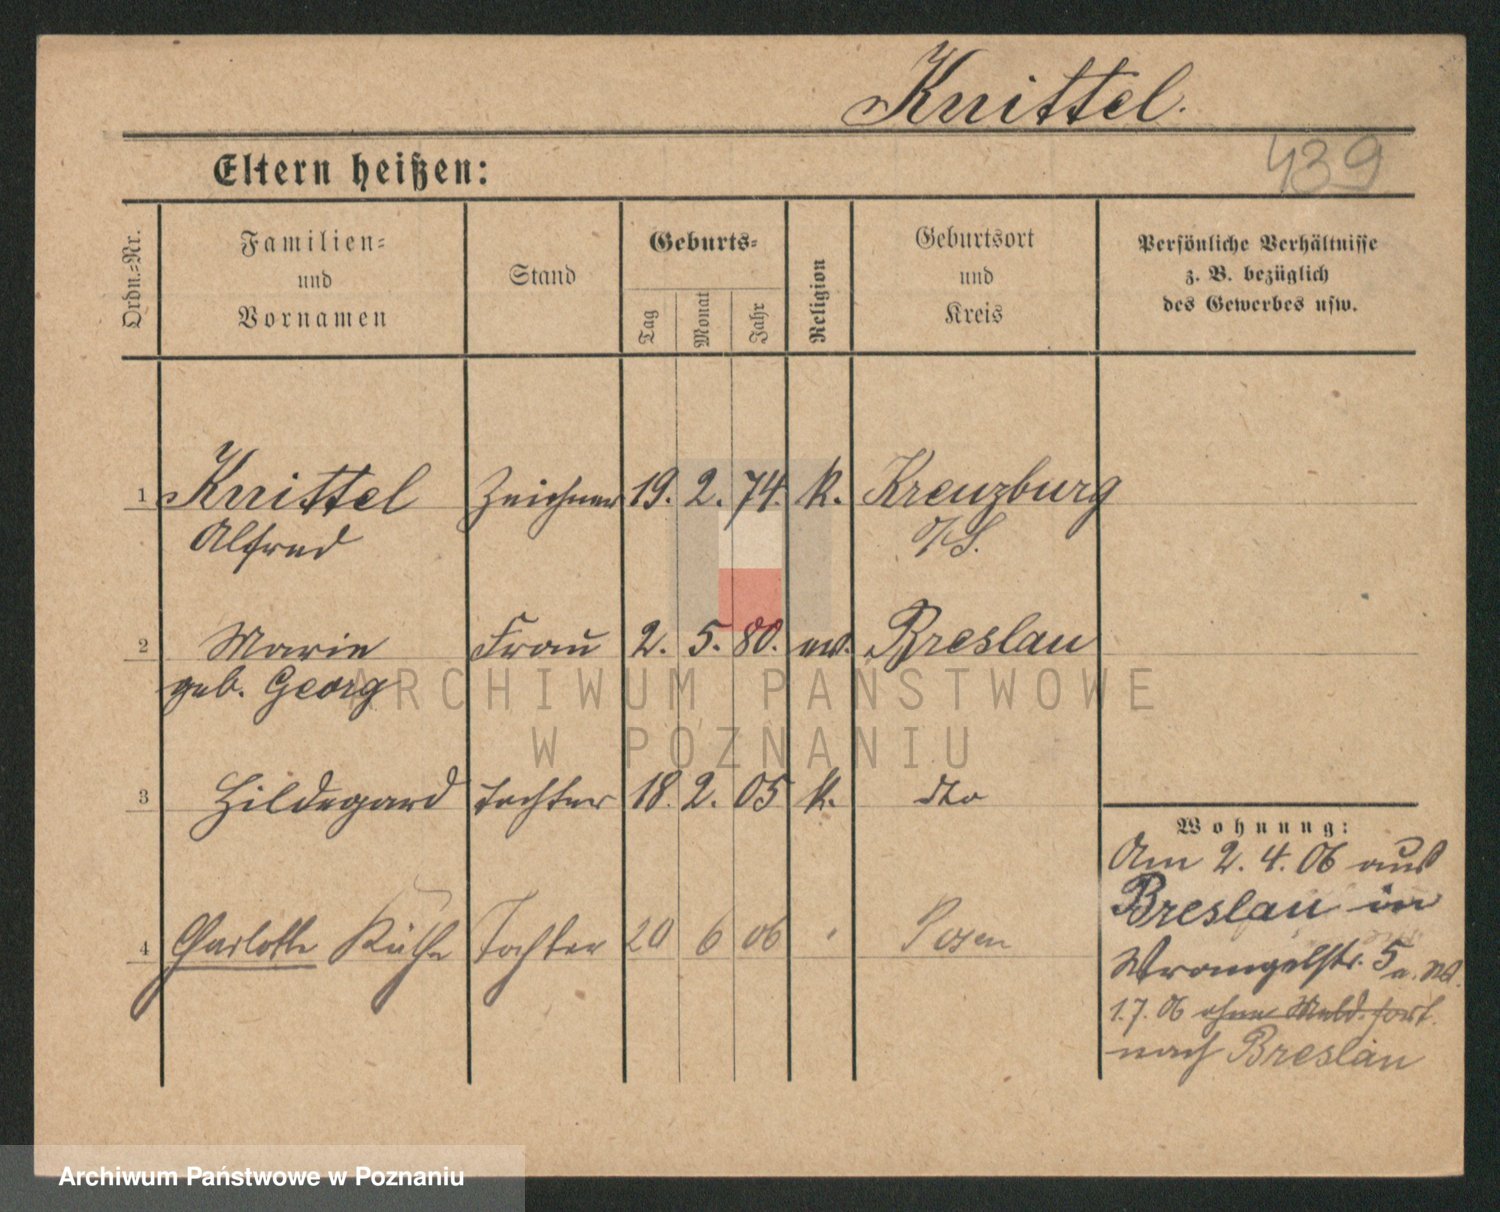 Knittel.
439
Eltern heißen:
Ordn.=Nr.
Familien=
und
Vornamen
Stand
Geburts=
Tag
Monat
Jahr
Religion
Geburtsort
und
Kreis
Persönliche Verhältnisse
z. B. bezüglich
des Gewerbes usw.
1 Knittel Zeichner 19. 2. 74. k. Kreuzburg
Alfred O/S.
2 Marie Frau 2. 5. 80. ev. Breslau
geb. Georg
3 Hildegard Tochter 18. 2. 05 k. dto
4 Charlotte Käthe Tochter 20 6 06 Posen
Wohnung:
Am 2. 4. 06 aus
Breslau in
Wrangelstr. 5
1.7.06 ohne Meld. fort.
nach Breslau
ARCHIWUM PAŃSTWOWE
W POZNANIU
Archiwum Państwowe w Poznaniu